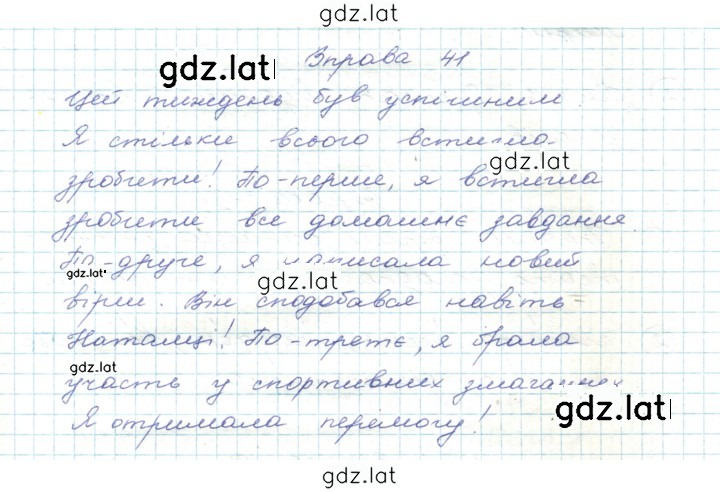 gdz.lat
gdz.lat Вправа 41
Цей тиждень був успішним
Я стільки всього встигла
gdz.lat
зробити! По-перше, я встигла
зробити все домашнє завдання
По-друге, я написала новий
gdz.lat
gdz.lat
вірш. Він сподобався навіть
Наталці! По-третє, я брала
gdz.lat
участь у спортивних змаганнях
gdz.lat
Я отримала перемогу!
gdz.lat